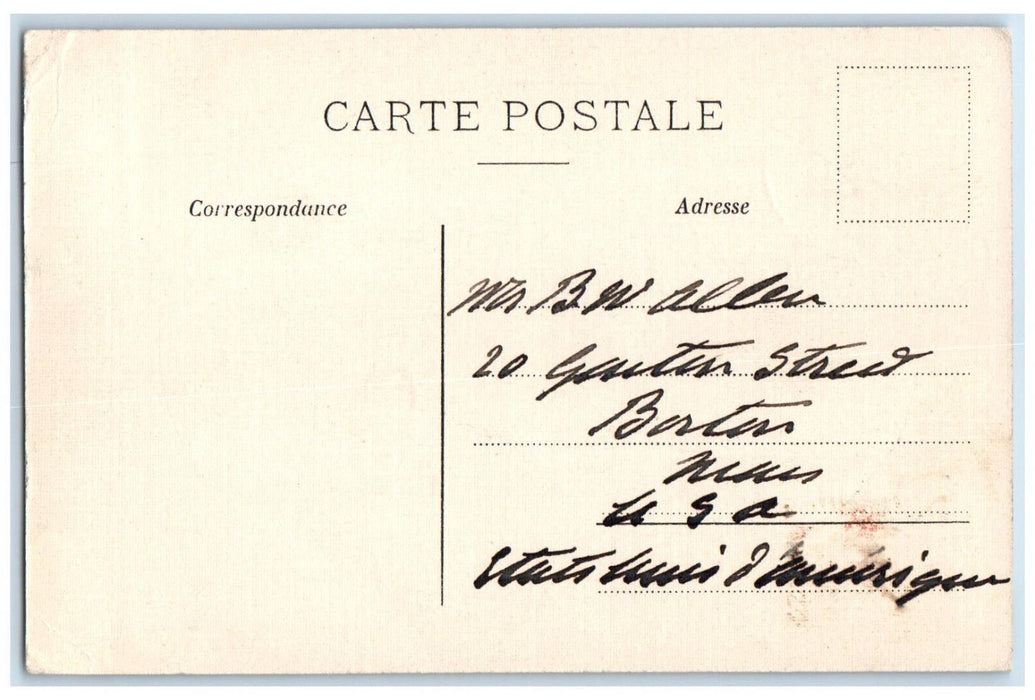 CARTE POSTALE
Correspondance
Adresse
Mr B W Allen
20 Street
Boston
Mass
U S A
Etats Unis d'Amerique